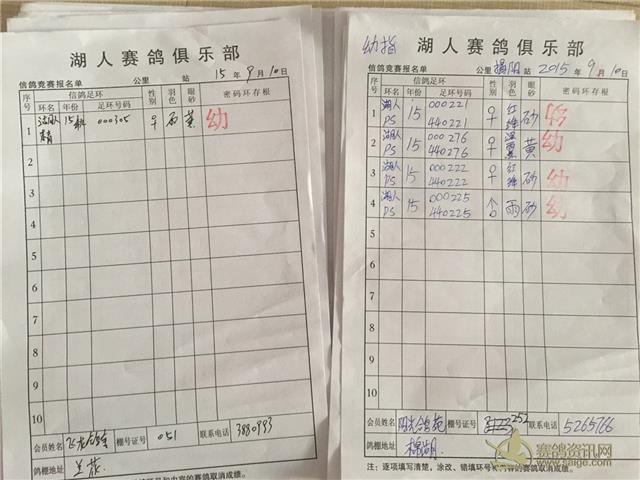 湖人赛鸽俱乐部
信鸽竞赛报名单 公里 站 15年9月10日
序号 信鸽足环 性别 羽色 眼砂 密码环存根
环名 年份 足环号码
1 15 000305 ♀ 雨 黄 幼
2
3
4
5
6
7
8
9
10
会员姓名 棚号证号 051 联系电话 3880993
鸽棚地址 兰花
幼指 湖人赛鸽俱乐部
信鸽竞赛报名单 公里 揭阳 站 2015年9月10日
序号 信鸽足环 性别 羽色 眼砂 密码环存根
环名 年份 足环号码
1 湖人PS 15 000221 440221 ♀ 红绛 砂 幼
2 湖人PS 15 000276 440276 ♀ 黄 幼
3 湖人PS 15 000222 440222 ♀ 红绛 砂 幼
4 湖人PS 15 000225 440225 雨 砂 幼
5
6
7
8
9
10
会员姓名 阳光鸽苑 棚号证号 252 联系电话 5265766
鸽棚地址 棉湖
注：逐项填写清楚，涂改、错填环号和内容的赛鸽取消成绩。
赛鸽资讯网
www.saige.com